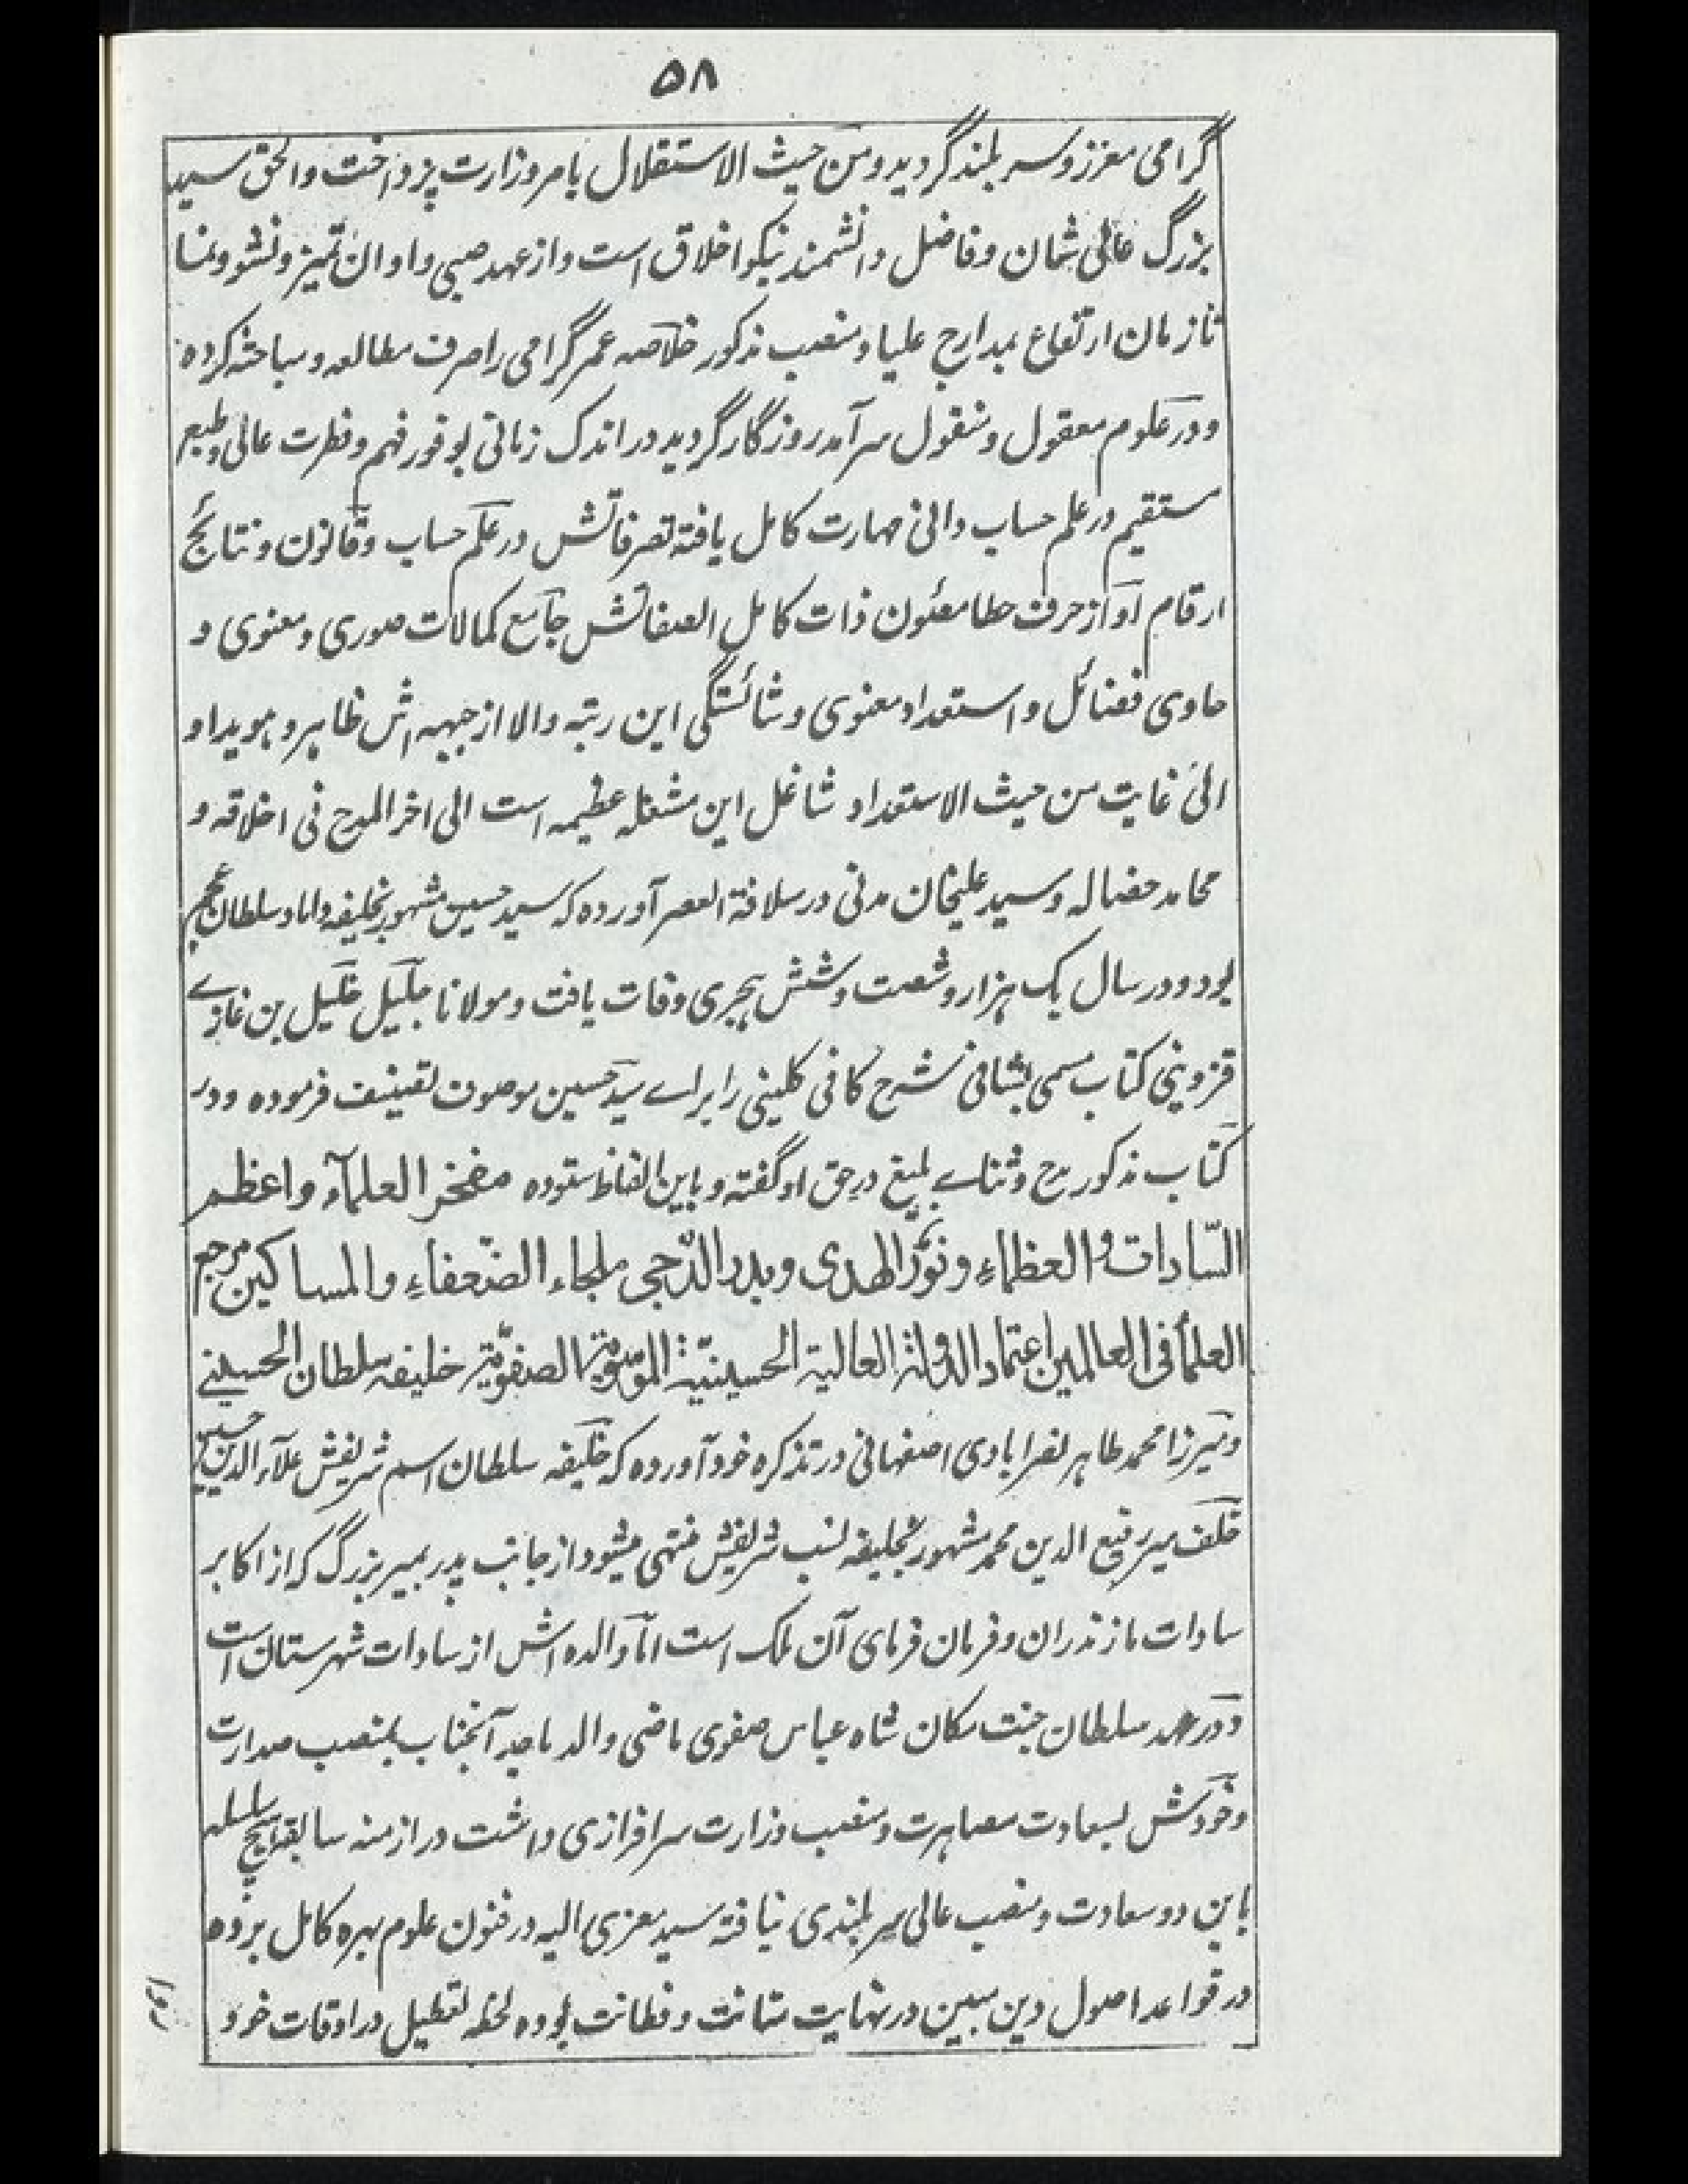 ۵۸
گرامی معزز و سر بلند گردید و من حیث الاستقلال بامر وزارت پرداخت والحق سید
بزرگ عالی شان و فاضل دانشمند نیکو اخلاق است و از عهد صبی و اوان تمیز و نشو و نما
تا زمان ارتفاع بمدارج علیا و منصب مذکور خلاصه عمر گرامی را صرف مطالعه و مباحثه کرده
و در علوم معقول و منقول سر آمد روزگار گردید در اندک زمانی بوفور فهم و فطرت عالی و طبع
مستقیم در علم حساب دانی مهارت کامل یافته تصرفاتش در علم حساب و قانون و نتائج
ارقام او از حرف خطا مصئون ذات کامل الصفاتش جامع کمالات صوری و معنوی و
حاوی فضائل و استعداد معنوی و شائستگی این رتبه والا از جبهه اش ظاهر و هویدا و
الی غایت من حیث الاستعداد شاغل این مشغله عظیمه است الی اخر المدح فی اخلاقه و
محامد خصاله و سید علیخان مدنی در سلافة العصر آورده که سید حسین مشهور بخلیفه داماد سلطان عجم
بود و در سال یک هزار و شصت و شش هجری وفات یافت و مولانا جلیل خلیل بن غازے
قزوینی کتاب مسمی بشافی شرح کافی کلینی را براے سید حسین موصوف تصنیف فرموده و در
کتاب مذکور مدح و ثناے بلیغ در حق او گفته و باین الفاظ ستوده مفخر العلمآء واعظم
السّادات والعظماء ونور الهدی وبدر الدّجی ملجاء الضّعفاء والمساکین مرجع
العلمآء فی العالمین اعتماد الدولة العالیة الحسینیّة الموسویّة الصفویّة خلیفه سلطان الحسینے
و میرزا محمد طاهر نصرابادی اصفهانی در تذکره خود آورده که خلیفه سلطان اسم شریفش علآء الدین حسین
خلف میر رفیع الدین محمد مشهور بخلیفه نسب شریفش منتهی میشود از جانب پدر بمیر بزرگ که از اکابر
سادات مازندران و فرمان فرمای آن ملک است امّا والده اش از سادات شهرستان است
و در عهد سلطان جنت مکان شاه عباس صفوی ماضی والد ماجد آنجناب بمنصب صدارت
و خودش بسعادت مصاهرت و منصب وزارت سرافرازی داشت در ازمنه سابقه هیچ سلسله
باین دو سعادت و منصب عالی سر بلندی نیافته سید معزی الیه در فنون علوم بهره کامل برده
در قواعد اصول دین مبین در نهایت متانت و فطانت بوده لحظه تعطیل در اوقات خود